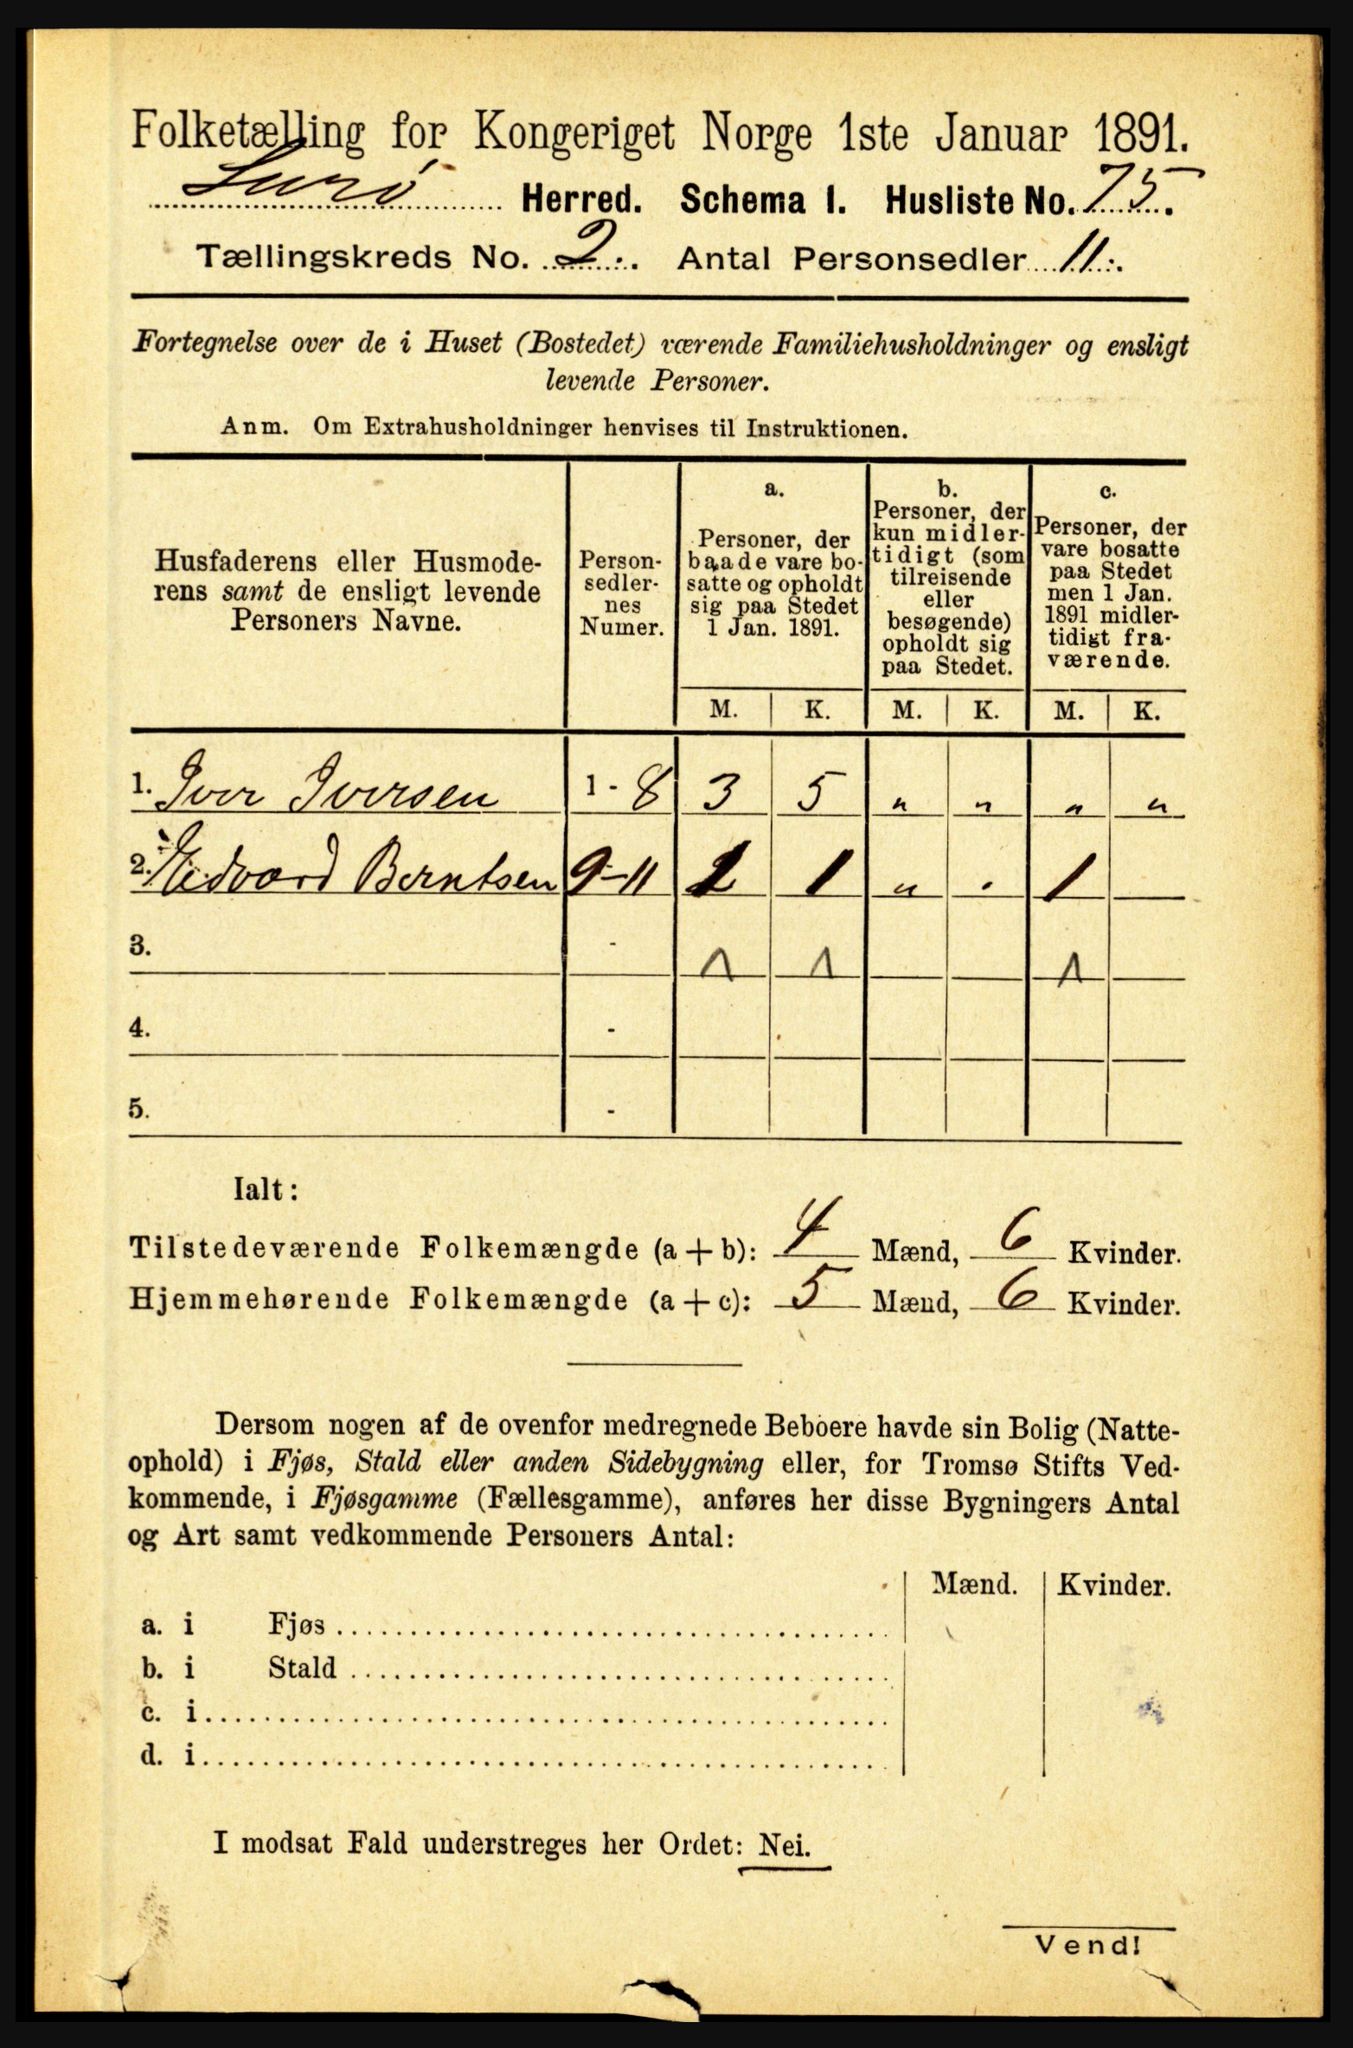 Folketælling for Kongeriget Norge 1ste Januar 1891.
Lurö Herred. Schema I. Husliste No. 75.
Tællingskreds No. 2. Antal Personsedler 11.
Fortegnelse over de i Huset (Bostedet) værende Familiehusholdninger og ensligt
levende Personer.
Anm. Om Extrahusholdninger henvises til Instruktionen.
Husfaderens eller Husmode-
rens samt de ensligt levende
Personers Navne.
Person-
sedler-
nes
Numer.
a.
Personer, der
baade vare bo-
satte og opholdt
sig paa Stedet
1 Jan. 1891.
b.
Personer, der
kun midler-
tidigt (som
tilreisende
eller
besøgende)
opholdt sig
paa Stedet.
c.
Personer, der
vare bosatte
paa Stedet
men 1 Jan.
1891 midler-
tidigt fra-
værende.
M. K. M. K. M. K.
1. Iver Iversen 1 - 8 3 5 " " " "
2. Edvard Berntsen 9-11 1 1 " . 1
3. - 1 1 1
4. -
5. -
Ialt:
Tilstedeværende Folkemængde (a + b): 4 Mænd, 6 Kvinder.
Hjemmehørende Folkemængde (a + c): 5 Mænd, 6 Kvinder.
Dersom nogen af de ovenfor medregnede Beboere havde sin Bolig (Natte-
ophold) i Fjøs, Stald eller anden Sidebygning eller, for Tromsø Stifts Ved-
kommende, i Fjøsgamme (Fællesgamme), anføres her disse Bygningers Antal
og Art samt vedkommende Personers Antal:
Mænd. Kvinder.
a. i Fjøs
b. i Stald
c. i
d. i
I modsat Fald understreges her Ordet: Nei.
Vend!